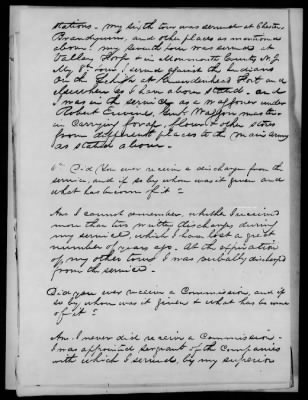 stations. My sixth tour was served at Chester,
Brandywine, and other places as mentioned
above. My seventh tour was served at
Valley Forge & in Monmouth County N.J.
My 8th tour, I served against the Indians
on the Lehigh at Gnaudenhead Fort and
elsewhere as I have above stated. and
I was in the service as a waggoner under
Robert Ewing, Genl Waggon master
in carrying forage, flour & other stores
from different places to the main army
as stated above.
6th Did you ever receive a discharge from the
service, and if so by whom was it given and
what has become of it?
Ans I cannot remember, whether I received
more than two written discharges during
my service which I have lost a great
number of years ago. At the expiration
of my other tours I was verbally discharged
from the service.
Did you ever receive a Commission, and if
so by whom was it given & what has become
of it?
Ans I never did receive a Commission.
I was appointed sergeant of the Companies
with which I served, by my superior